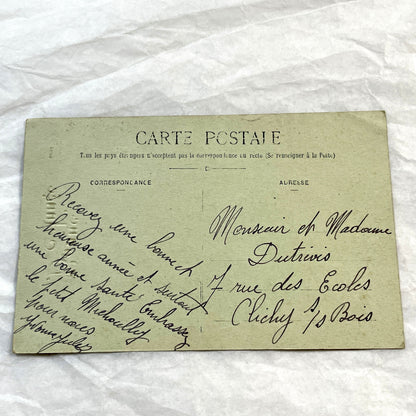 CARTE POSTALE
Tous les pays étrangers n'acceptent pas la correspondance au recto (Se renseigner à la Poste)
CORRESPONDANCE
ADRESSE
Recevez une bonne et
heureuse année et surtout
une bonne santé Embrassez
le petit
pour nous
Monsieur et Madame
Dutrivis
7 rue des Ecoles
Clichy s/s Bois